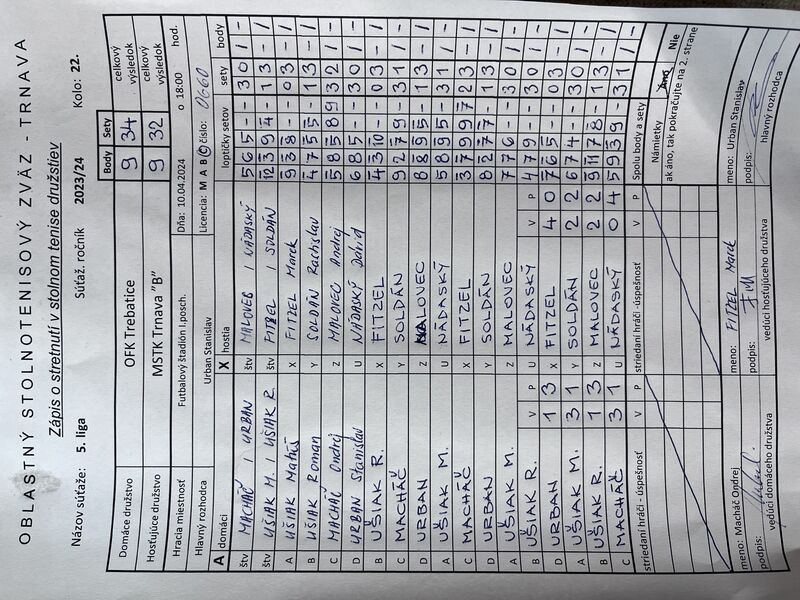 OBLASTNÝ STOLNOTENISOVÝ ZVÄZ - TRNAVA
Zápis o stretnutí v stolnom tenise družstiev
Názov súťaže: 5. liga Súťaž. ročník 2023/24 Kolo: 22.
Body Sety
Domáce družstvo OFK Trebatice 9 34 celkový výsledok
Hosťujúce družstvo MSTK Trnava "B" 9 32 celkový výsledok
Hracia miestnosť Futbalový štadión I.posch. Dňa: 10.04.2024 o 18:00 hod.
Hlavný rozhodca Urban Stanislav Licencia: M A B C číslo: 0660
A domáci X hostia loptičky setov sety body
štv MACHÁČ / URBAN štv MALOVEC / NÁDASKÝ 5 6 5 - - 3 0 1 -
štv UŠIAK M. / UŠIAK R. štv FITZEL / SOLDÁN 12 3 9 4 - 1 3 - 1
A UŠIAK Matúš X FITZEL Marek 9 3 8 - - 0 3 - 1
B UŠIAK Roman Y SOLDÁN Rastislav 4 7 5 5 - 1 3 - 1
C MACHÁČ Ondrej Z MALOVEC Andrej 5 8 5 8 9 3 2 1 -
D URBAN Stanislav U NÁDASKÝ Dávid 6 8 5 - - 3 0 1 -
B UŠIAK R. X FITZEL 4 3 10 - - 0 3 - 1
C MACHÁČ Y SOLDÁN 9 2 7 9 - 3 1 1 -
D URBAN Z MALOVEC 8 8 9 5 - 1 3 - 1
A UŠIAK M. U NÁDASKÝ 5 8 9 5 - 3 1 1 -
C MACHÁČ X FITZEL 3 7 9 9 7 2 3 - 1
D URBAN Y SOLDÁN 8 2 7 7 - 1 3 - 1
A UŠIAK M. Z MALOVEC 7 7 6 - - 3 0 1 -
B UŠIAK R. V P U NÁDASKÝ V P 4 7 9 - - 3 0 1 -
D URBAN 1 3 X FITZEL 4 0 7 6 5 - - 0 3 - 1
A UŠIAK M. 3 1 Y SOLDÁN 2 2 6 7 4 - - 3 0 1 -
B UŠIAK R. 1 3 Z MALOVEC 2 2 9 11 7 8 - 1 3 - 1
C MACHÁČ 3 1 U NÁDASKÝ 0 4 5 9 3 9 - 3 1 1 -
striedaní hráči - úspešnosť V P striedaní hráči - úspešnosť V P Spolu body a sety
Námietky Áno Nie
ak áno, tak pokračujte na 2. strane
meno: Macháč Ondrej meno: FITZEL Marek meno: Urban Stanislav
podpis: podpis: podpis:
vedúci domáceho družstva vedúci hosťujúceho družstva hlavný rozhodca